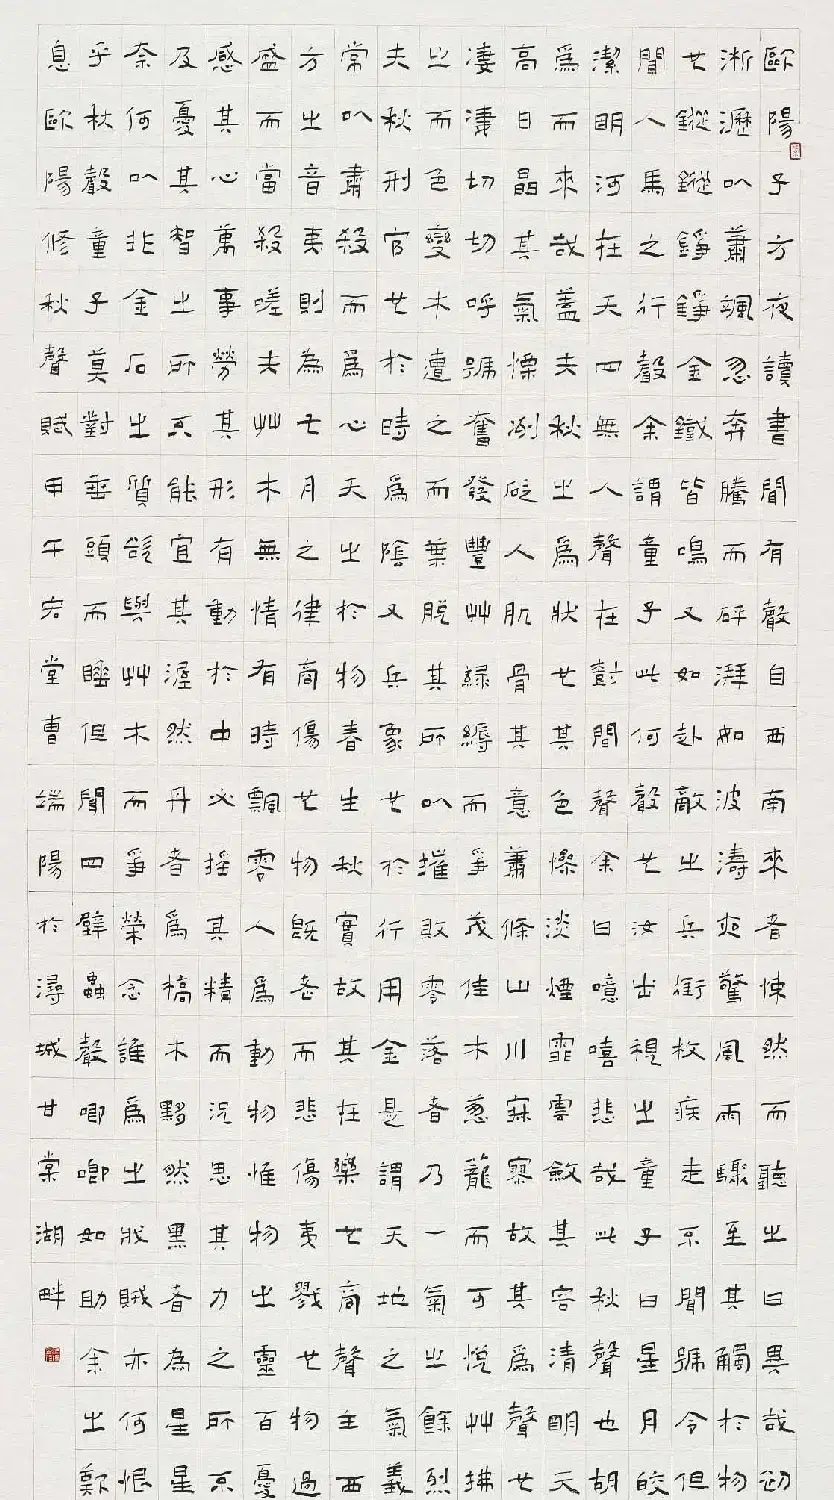 歐陽子方夜讀書聞有聲自西南來者悚然而聽之曰異哉初
淅瀝以蕭颯忽奔騰而砰湃如波濤夜驚風雨驟至其觸於物
也鏦鏦錚錚金鐵皆鳴又如赴敵之兵銜枚疾走不聞號令但
聞人馬之行聲余謂童子此何聲也汝出視之童子曰星月皎
潔明河在天四無人聲在樹間聲余曰噫嘻悲哉此秋聲也胡
爲而來哉蓋夫秋之爲狀也其色慘淡煙霏雲斂其容清明天
高日晶其氣慄冽砭人肌骨其意蕭條山川寂寥故其爲聲也
淒淒切切呼號奮發豐艸綠縟而爭茂佳木蔥蘢而可悅艸拂
之而色變木遭之而葉脫其所以摧敗零落者乃一氣之餘烈
夫秋刑官也於時爲陰又兵象也於行用金是謂天地之氣義
常以肅殺而爲心天之於物春生秋實故其在樂也商聲主西
方之音夷則為七月之律商傷也物既老而悲傷夷戮也物過
盛而當殺嗟夫艸木無情有時飄零人爲動物惟物之靈百憂
感其心萬事勞其形有動於中必搖其精而況思其力之所不
及憂其智之所不能宜其渥然丹者爲槁木黟然黑者為星星
奈何以非金石之質欲與艸木而爭榮念誰爲之戕賊亦何恨
乎秋聲童子莫對垂頭而睡但聞四壁蟲聲唧唧如助余之歎
息歐陽修秋聲賦甲午宏堂曹端陽於潯城甘棠湖畔